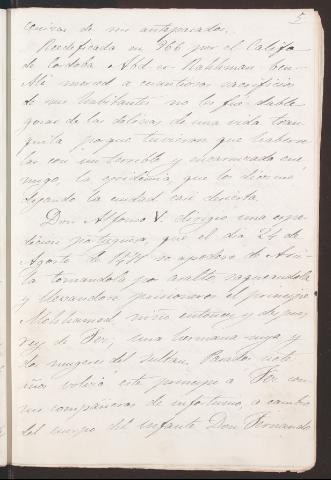 5
cenizas de sus antepasados.
Reedificada en 966 por el Califa
de Cordoba Abd-er-Rahhman-ben-
Ali merced a cuantiosos sacrificios
de sus habitantes no les fué dable
gozar de las delicias de una vida tran-
quila porque tuvieron que habérse
las con un terrible y encarnizado ene
migo, la epidémia, que los diezmó
dejando la ciudad casi desierta.
Don Alfonso V. dirigio una espe-
dicion portuguesa, que el dia 24 de
Agosto de 1471 se apodero de Arci-
la tomandola por asalto, saqueandola
y llevandose prisioneros al principe
Mohhamed niño entonces y despues
rey de Fez; una hermana suya y
dos mugeres del sultan. Pasados siete
años volvió este principe a Fez con
sus compañeras de infortunio, a cambio
del cuerpo del infante Don Fernando